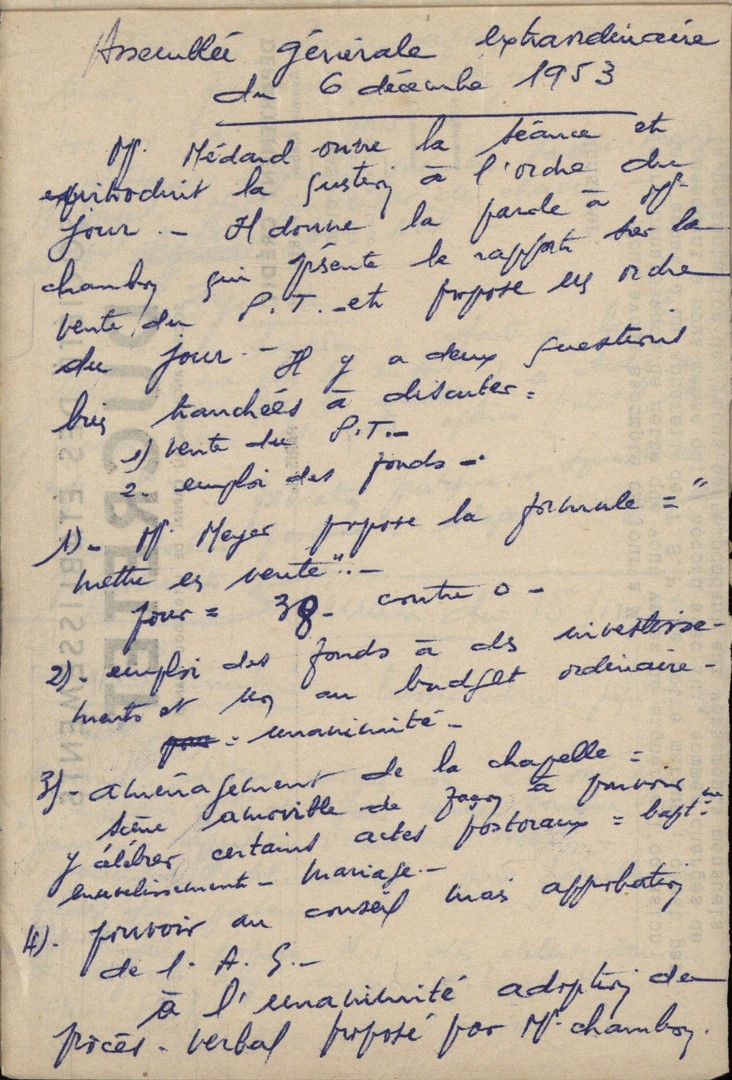 Assemblée générale extraordinaire
du 6 décembre 1953
Mr. Médard ouvre la séance et
introduit la question à l'ordre du
jour. - Il donne la parole à Mr
Chambon qui présente le rapport sur la
vente du P.T. - et propose en ordre
du jour. - Il y a deux questions
bien tranchées à discuter =
1) vente du P.T. -
2. emploi des fonds -
1) - Mr. Meyer propose la formule = "
mettre en vente". -
pour = 38 - contre 0 -
2) - emploi des fonds à des investisse-
ments et non au budget ordinaire -
= unanimité -
3) - aménagement de la chapelle =
scène amovible de façon à pouvoir
y célébrer certains actes pastoraux = bapt.me
ensevelissement - mariage. -
4) - pouvoir au conseil mais approbation
de l'A.G. -
à l'unanimité adoption du
procès-verbal proposé par Mr Chambon.